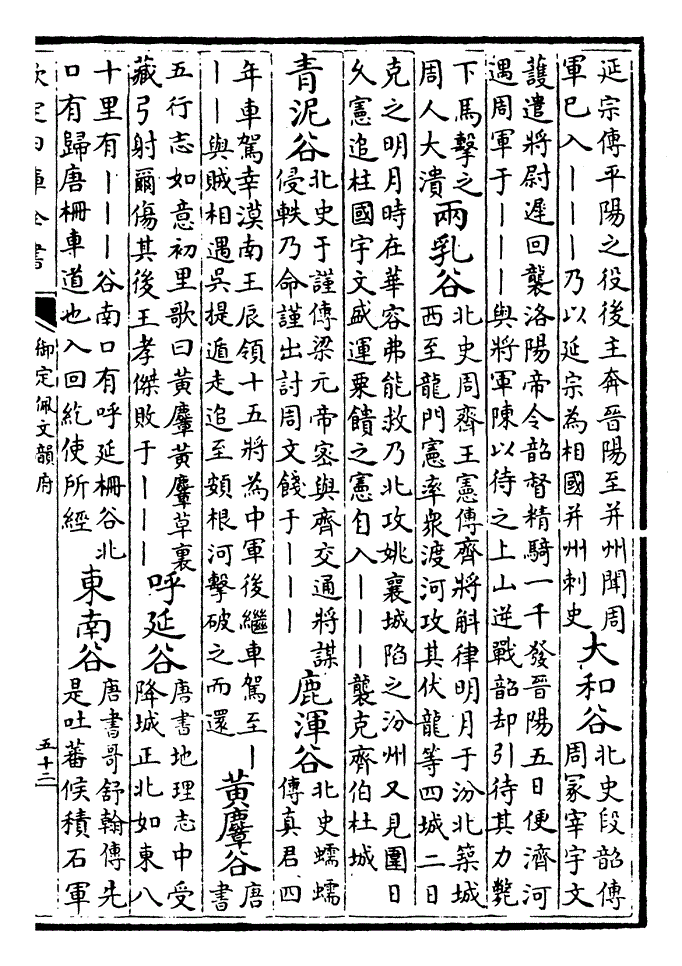 延宗傳平陽之役後主奔晉陽至并州聞周
軍已入丨丨丨乃以延宗為相國并州刺史
大和谷
北史段韶傳
周冡宰宇文
護遣將尉遲迥襲洛陽帝令韶督精騎一千發晉陽五日便濟河
遇周軍于丨丨丨與將軍陳以待之上山逆戰韶却引待其力斃
下馬擊之
周人大潰
兩乳谷
北史周齊王憲傳齊將斛律明月于汾北築城
西至龍門憲率衆渡河攻其伏龍等四城二日
克之明月時在華容弗能救乃北攻姚襄城陷之汾州又見圍日
乆憲追柱國宇文盛運粟饋之憲自入丨丨丨襲克齊伯杜城
青泥谷
北史于謹傳梁元帝密與齊交通將謀
侵軼乃命謹出討周文餞于丨丨丨
鹿渾谷
北史蠕蠕
傳真君四
年車駕幸漠南王辰領十五將為中軍後繼車駕至丨
丨丨與賊相遇吳提遁走追至頞根河擊破之而還
黃麞谷
唐
書
五行志如意初里歌曰黃麞黃麞草裏
藏弓射爾傷其後王孝傑敗于丨丨丨
呼延谷
唐書地理志中受
降城正北如東八
十里有丨丨丨谷南口有呼延柵谷北
口有歸唐柵車道也入回紇使所經
東南谷
唐書哥舒翰傳先
是吐蕃候積石軍
欽定四庫全書
御定佩文韻府
五十二